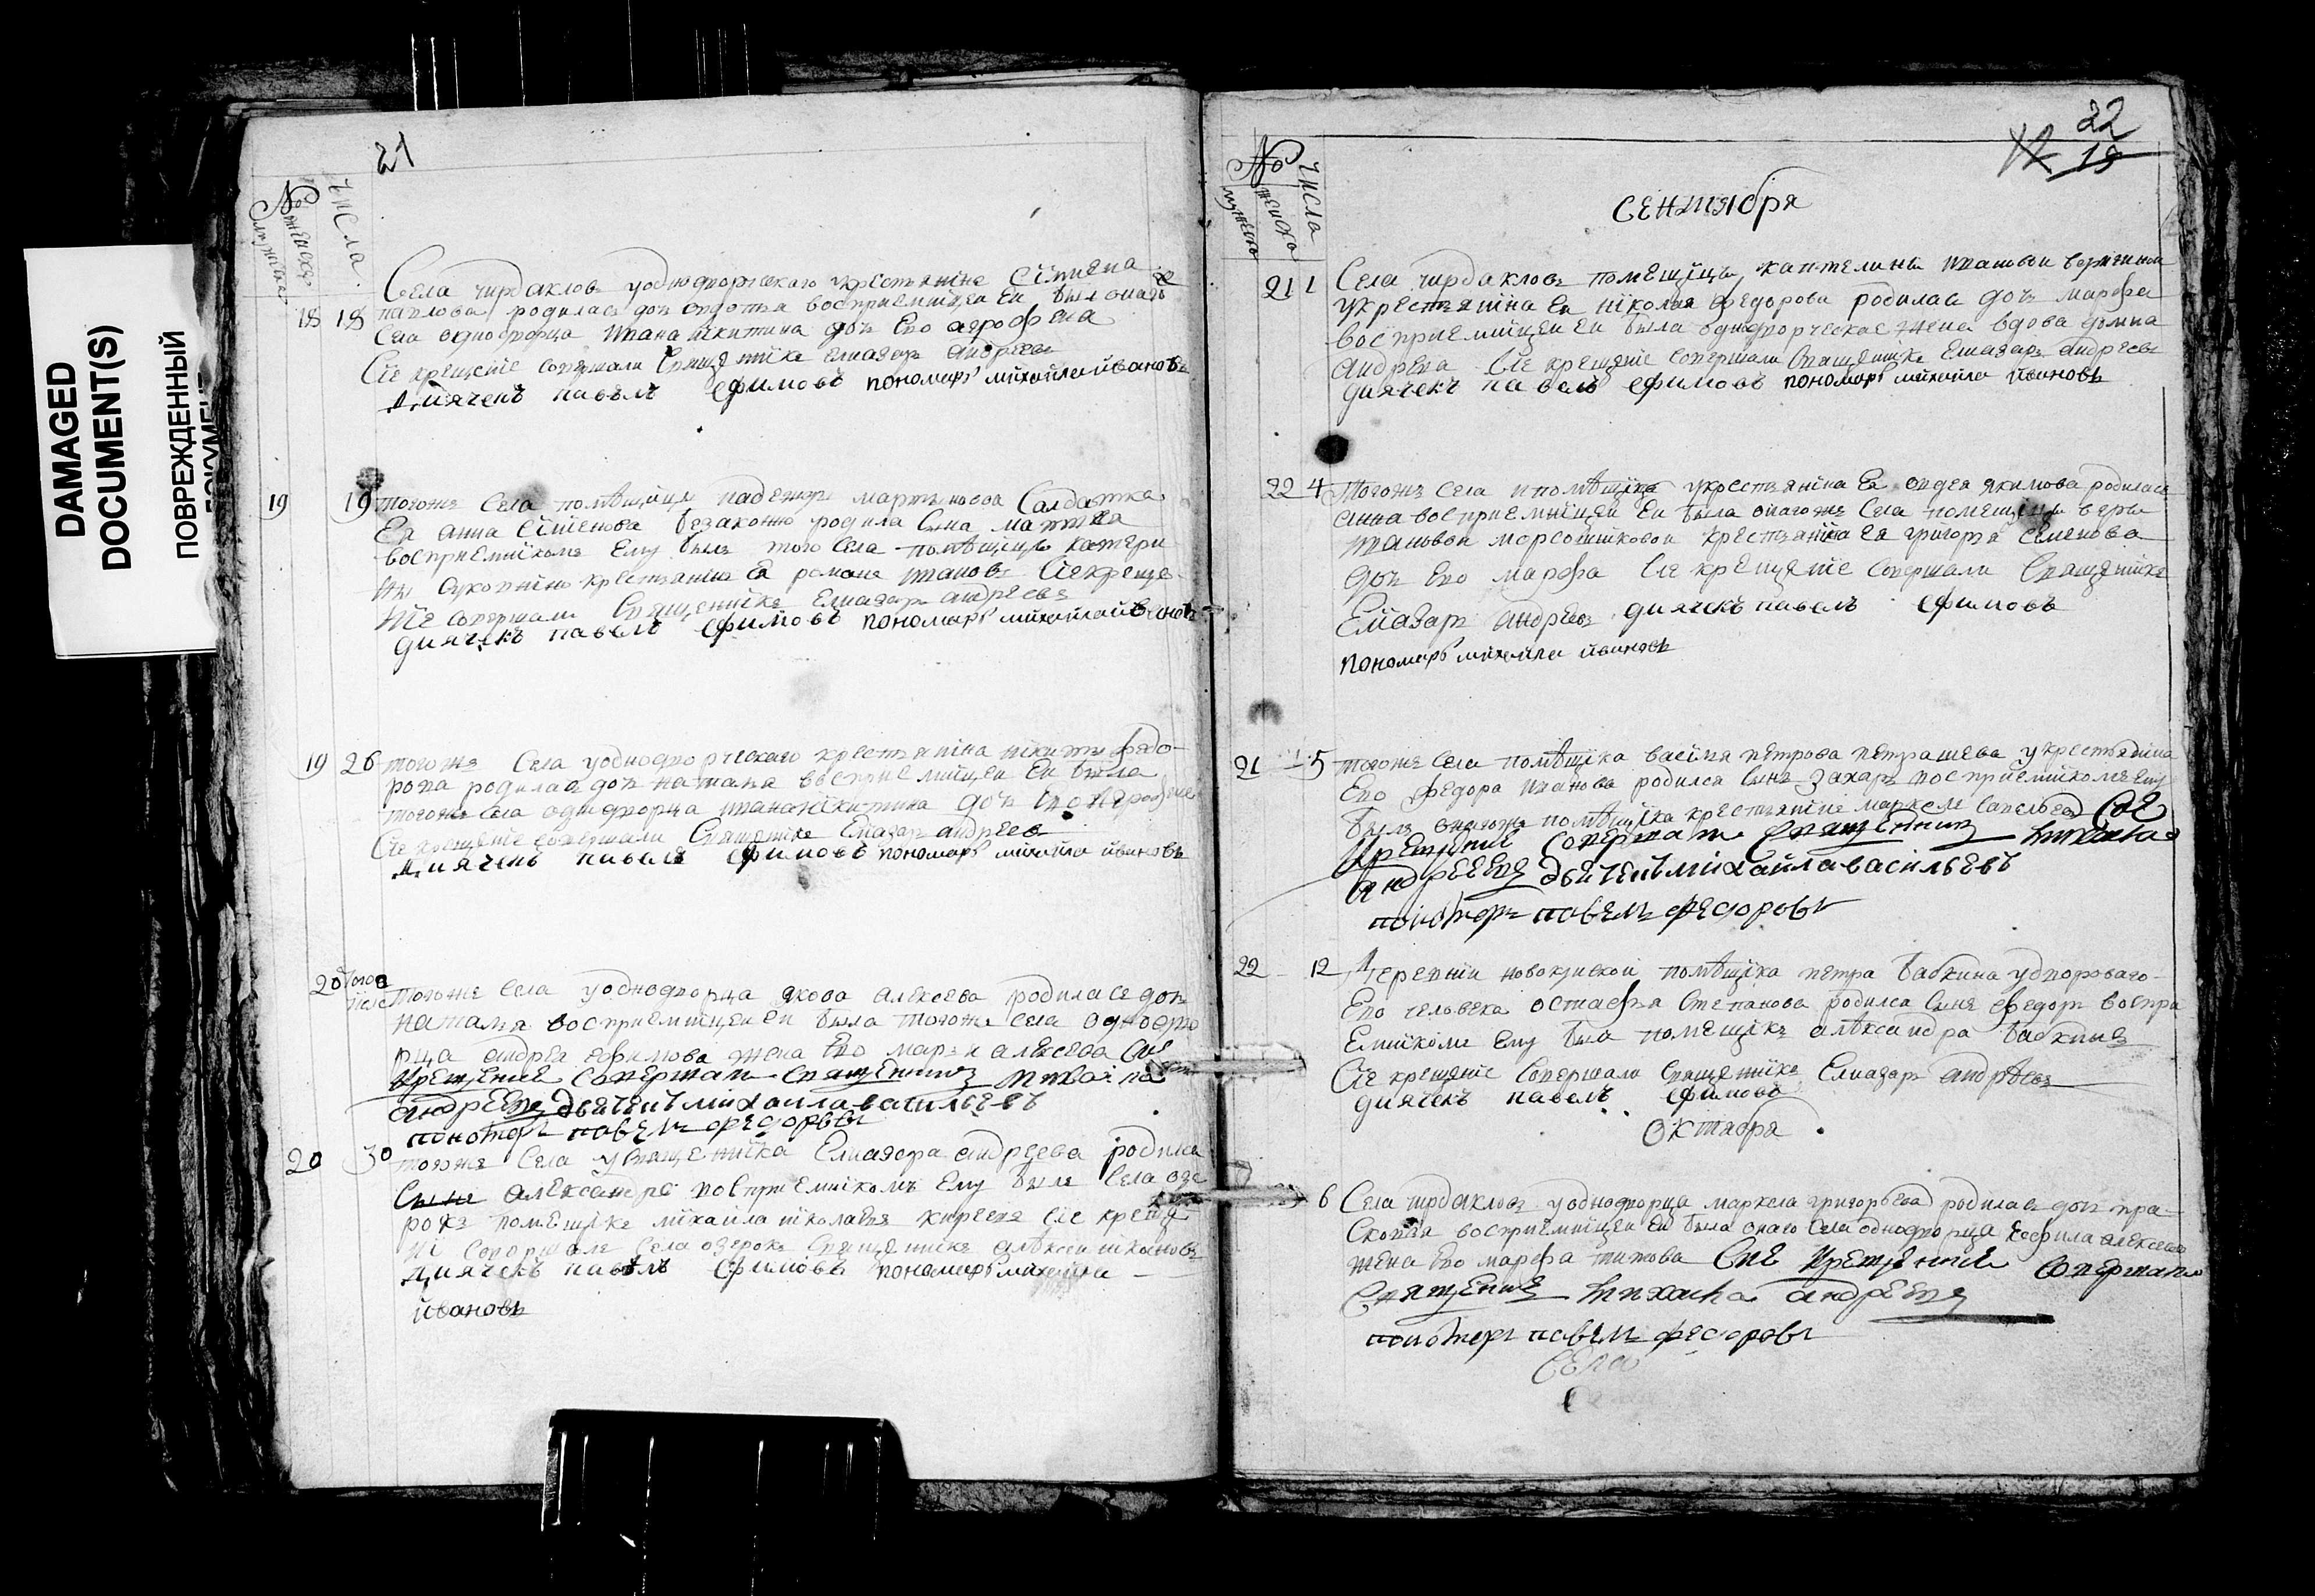 DAMAGED
DOCUMENT(S)
ПОВРЕЖДЕННЫЙ
ДОКУМЕНТ
21
№ числа
мужеска женска
Села чирдаклов уоднодворческаго укрестьянина
18 18 павлова родилас доч авдотья восприемницеи еи был онаго
села однодворца ивана никитина доч Ево агрофена
Сіе крещеніе совершали Священникъ Елиазаръ андреевъ
диячекъ павелъ ефимовъ пономарь михайла ивановъ
19 19 тогожъ Села помѣщицы надежды мартиновой Салдатка
Ея анна незаконно родила Сына матвея
восприемникомъ Ему былъ того Села помѣщицы катери
ны крестьянинъ Ея романъ ивановъ Сіе креще
ніе совершали Священникъ Елиазаръ андреевъ
диячекъ павелъ ефимовъ пономарь михайла ивановъ
19 26 тогожъ Села уоднодворческаго крестьянина никиты федо
рова родилас доч наталья восприемницеи Еи была
тогожъ села однодворца ивана никитина доч Ево
Сіе крещеніе совершали Священникъ Елиазаръ андреевъ
диячекъ павелъ ефимовъ пономарь михайла ивановъ
20 того числа тогоже села уоднодворца якова алексеева родиласе доч
наталя восприемницеи еи была тогоже села однодво
рца андрея ефимова жена Ево марья алексева Сие
крещение совершали священникъ михаила
андреевъ дьячекъ михаила васильевъ
пономарь павелъ федоровъ
20 30 тогоже Села у Священника Елиазара андреева родилса
Сынъ александръ восприемникомъ Ему былъ Села озе
рокъ помещикъ михаила николаевъ киреевъ сіе креще
ні совершалъ Села озерокъ Священникъ алексеи ивановъ
диячекъ павелъ ефимовъ пономарь михайла
ивановъ
22
19
№ числа
мужеска женска
СЕНтября
21 1 Села чирдаклов помещицы капителины ивановой
укрестьянина Ея николая федорова родилас доч марфа
восприемницеи еи была однодворческае жена вдова домна
андрева Сіе крещеніе совершали Священникъ Елиазаръ андреевъ
диячекъ павелъ ефимовъ пономарь михайла ивановъ
22 4 тогожъ села помѣщика укрестьянина Ея авдея якимова родилась
анна восприемницеи еи была онагожъ Села помещицы веры
ивановои крестьянина Ея григорья семенова
доч Ево марфа Сіе крещеніе совершали Священникъ
Елиазаръ андреевъ диячекъ павелъ ефимовъ
пономарь михайла ивановъ
21 5 тогоже села помѣщика василия петрова петрашева укрестьянина
Ево федора иванова родился Сынъ захаръ восприемникомъ Ему
былъ онагожъ помѣщика крестьянинъ маркелъ савельевъ Сие
крещение совершали священникъ михаила
андреевъ дьячекъ михаила васильевъ
пономарь павелъ федоровъ
22 12 Деревни помѣщика петра бабкина удвороваго
Ево человека остафья степанова родилса Сынъ федоръ воспри
емникомъ Ему был помещикъ александра бабкинъ
Сіе крещеніе Совершали Священникъ Елиазаръ андреевъ
диячекъ павелъ ефимовъ
Октября
6 Села чирдаклов уоднодворца маркела григорьева родилас доч пра
сковья восприемницеи еи была онаго Села однодворца алексеева
жена Ево марфа титова Сие крещение совершали
Священникъ михаила андреевъ
пономарь павелъ федоровъ
Села